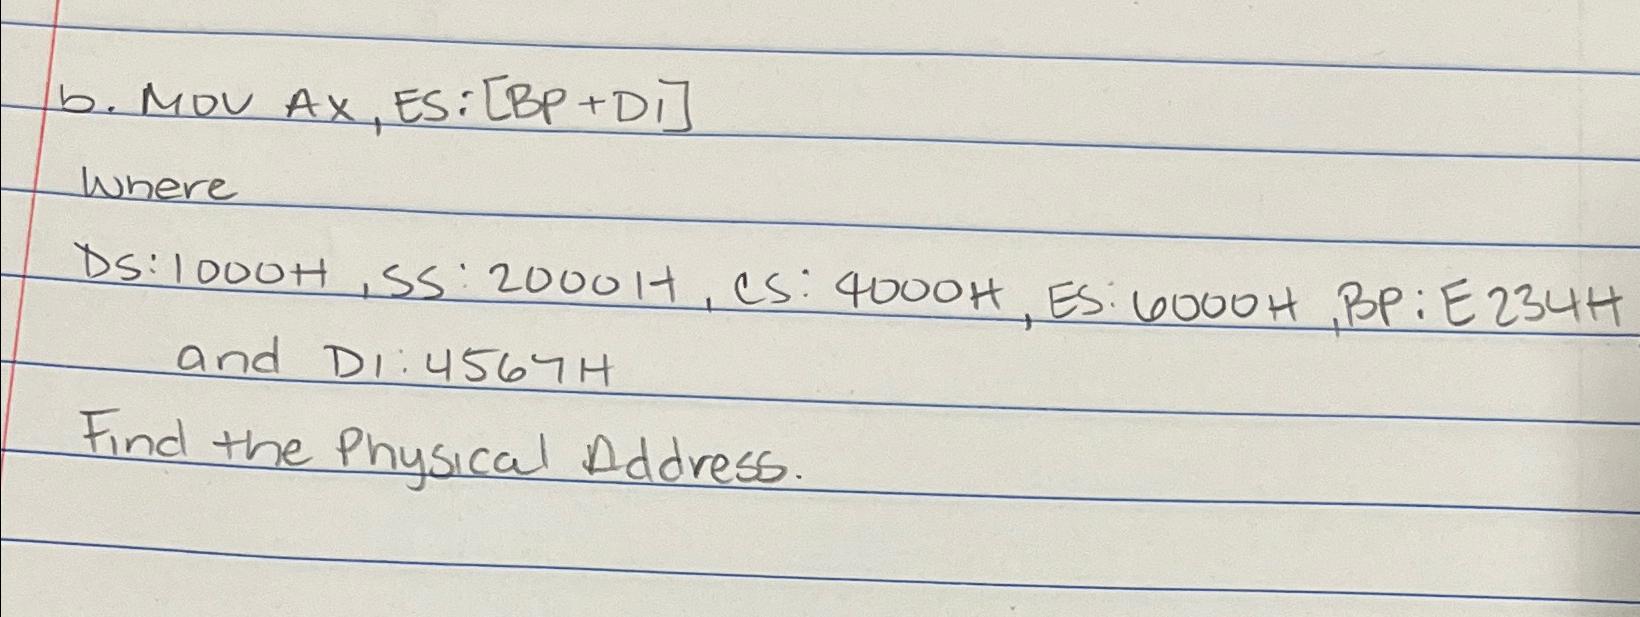 b. MOV AX, ES:[BP+DI]
Where
DS:1000H, SS: 2000H, CS: 4000H, ES: 6000H, BP: E234H
and DI: 4567H
Find the Physical Address.